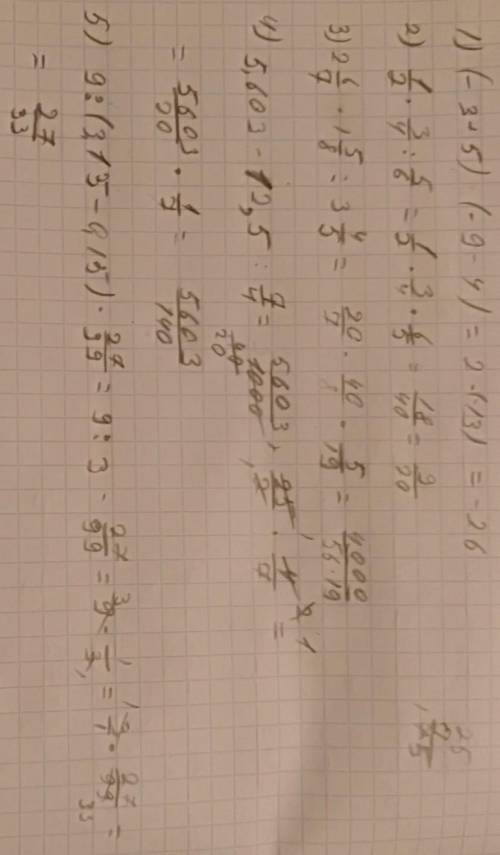 1) (-3+5) (-9-4) = 2·(-13) = -26
2) 1/2 · 3/4 : 5/6 = 1/2 · 3/4 · 6/5 = 18/40 = 9/20
3) 2 6/7 · 1 5/8 : 3 4/5 = 20/7 · 40/ · 5/19 = 4000/56·19
4) 5,603 · 12,5 : 7/4 = 5603/1000 · 25/2 · 4/7 =
= 5603/20 · 1/7 = 5603/140
5) 9:(3,15-0,15) · 27/99 = 9:3 · 27/99 = 9 · 1/3 = · 27/99 =
= 27/33
25